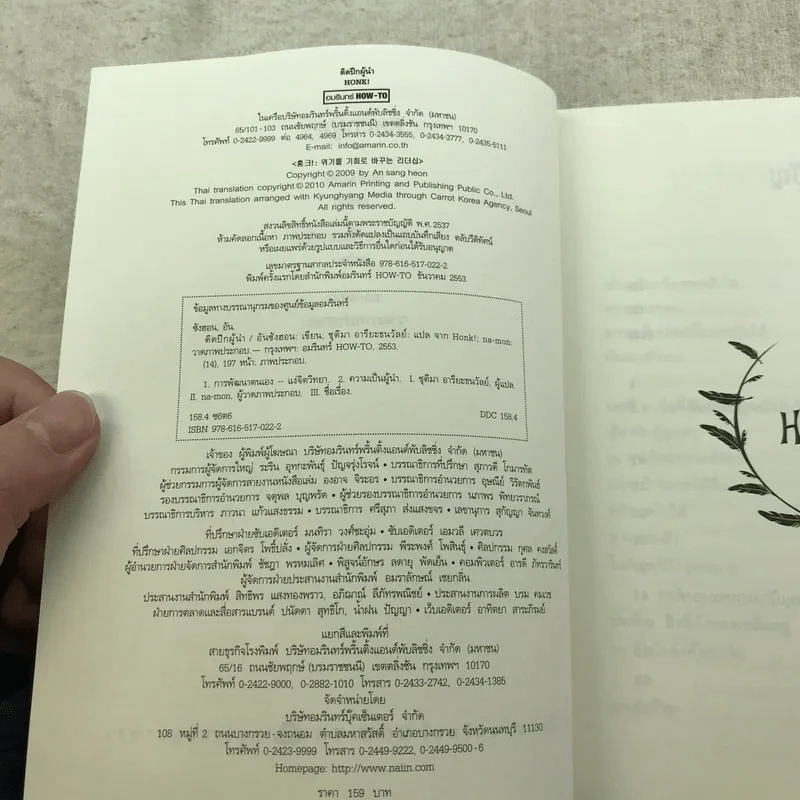 ติดปีกผู้นำ
HONK!
อมรินทร์ HOW-TO
ในเครือบริษัทอมรินทร์พริ้นติ้งแอนด์พับลิชชิ่ง จำกัด (มหาชน)
65/101-103 ถนนชัยพฤกษ์ (บรมราชชนนี) เขตตลิ่งชัน กรุงเทพฯ 10170
โทรศัพท์ 0-2422-9999 ต่อ 4964, 4969 โทรสาร 0-2434-3555, 0-2434-3777, 0-2435-5111
E-mail: info@amarin.co.th
<홍크!: 위기를 기회로 바꾸는 리더십>
Copyright © 2009 by An sang heon
Thai translation copyright © 2010 Amarin Printing and Publishing Public Co., Ltd.
This Thai translation arranged with Kyunghyang Media through Carrot Korea Agency, Seoul
All rights reserved.
สงวนลิขสิทธิ์หนังสือเล่มนี้ตามพระราชบัญญัติ พ.ศ. 2537
ห้ามคัดลอกเนื้อหา ภาพประกอบ รวมทั้งดัดแปลงเป็นแถบบันทึกเสียง ตลับวีดิทัศน์
หรือเผยแพร่ด้วยรูปแบบและวิธีการอื่นใดก่อนได้รับอนุญาต
เลขมาตรฐานสากลประจำหนังสือ 978-616-517-022-2
พิมพ์ครั้งแรกโดยสำนักพิมพ์อมรินทร์ HOW-TO ธันวาคม 2553
ข้อมูลทางบรรณานุกรมของศูนย์ข้อมูลอมรินทร์
ซังฮอน, อัน.
ติดปีกผู้นำ / อันซังฮอน: เขียน; ชุติมา อารียะธนวัลย์: แปล จาก Honk!; na-mon:
วาดภาพประกอบ.— กรุงเทพฯ: อมรินทร์ HOW-TO, 2553.
(14), 197 หน้า: ภาพประกอบ.
1. การพัฒนาตนเอง -- แง่จิตวิทยา. 2. ความเป็นผู้นำ. I. ชุติมา อารียะธนวัลย์, ผู้แปล.
II. na-mon, ผู้วาดภาพประกอบ. III. ชื่อเรื่อง.
158.4 ซ6ต6 DDC 158.4
ISBN 978-616-517-022-2
เจ้าของ ผู้พิมพ์ผู้โฆษณา บริษัทอมรินทร์พริ้นติ้งแอนด์พับลิชชิ่ง จำกัด (มหาชน)
กรรมการผู้จัดการใหญ่ ระริน อุทกะพันธุ์ ปัญจรุ่งโรจน์ • บรรณาธิการที่ปรึกษา สุภาวดี โกมารทัต
ผู้ช่วยกรรมการผู้จัดการสายงานหนังสือเล่ม องอาจ จิระอร • บรรณาธิการอำนวยการ อุษณีย์ วิรัตกพันธ์
รองบรรณาธิการอำนวยการ จตุพล บุญพรัด • ผู้ช่วยรองบรรณาธิการอำนวยการ นภาพร พิทยวราภรณ์
บรรณาธิการบริหาร ภาวนา แก้วแสงธรรม • บรรณาธิการ ศรีสุภา ส่งแสงขจร • เลขานุการ สุกัญญา จันทวงศ์
ที่ปรึกษาฝ่ายซับเอดิเตอร์ มนทิรา วงศ์ชะอุ่ม • ซับเอดิเตอร์ เอมวลี เศวตบวร
ที่ปรึกษาฝ่ายศิลปกรรม เอกจิตร โพธิ์ปลั่ง • ผู้จัดการฝ่ายศิลปกรรม พีระพงศ์ โพสินธุ์ • ศิลปกรรม กุศล คงสวัสดิ์
ผู้อำนวยการฝ่ายจัดการสำนักพิมพ์ ชัชฎา พรหมเลิศ • พิสูจน์อักษร ลดายุ พัดเย็น • คอมพิวเตอร์ อารดี ภัทรวารินทร์
ผู้จัดการฝ่ายประสานงานสำนักพิมพ์ อมราลักษณ์ เชยกลิ่น
ประสานงานสำนักพิมพ์ สิทธิพร แสงทองพราว, อภิญาณ์ ลีภัทรพณิชย์ • ประสานงานการผลิต บรม คมเวช
ฝ่ายการตลาดและสื่อสารแบรนด์ ปนัดดา สุทธิโก, น้ำฝน ปัญญา • เว็บเอดิเตอร์ อาทิตยา สาระภิรมย์
แยกสีและพิมพ์ที่
สายธุรกิจโรงพิมพ์ บริษัทอมรินทร์พริ้นติ้งแอนด์พับลิชชิ่ง จำกัด (มหาชน)
65/16 ถนนชัยพฤกษ์ (บรมราชชนนี) เขตตลิ่งชัน กรุงเทพฯ 10170
โทรศัพท์ 0-2422-9000, 0-2882-1010 โทรสาร 0-2433-2742, 0-2434-1385
จัดจำหน่ายโดย
บริษัทอมรินทร์บุ๊คเซ็นเตอร์ จำกัด
108 หมู่ที่ 2 ถนนบางกรวย-จงถนอม ตำบลมหาสวัสดิ์ อำเภอบางกรวย จังหวัดนนทบุรี 11130
โทรศัพท์ 0-2423-9999 โทรสาร 0-2449-9222, 0-2449-9500-6
Homepage: http://www.naiin.com
ราคา 159 บาท
H